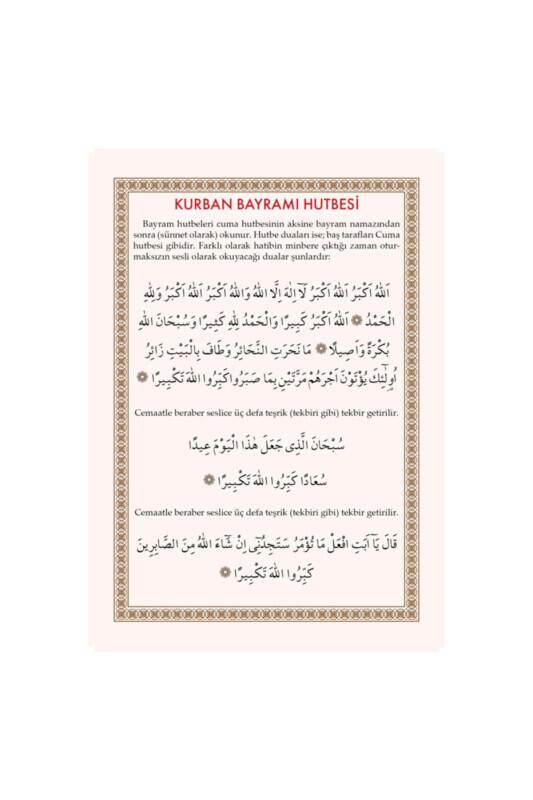 KURBAN BAYRAMI HUTBESİ
Bayram hutbeleri cuma hutbesinin aksine bayram namazından
sonra (sünnet olarak) okunur. Hutbe duaları ise; baş tarafları Cuma
hutbesi gibidir. Farklı olarak hatibin minbere çıktığı zaman otur-
maksızın sesli olarak okuyacağı dualar şunlardır:
اَللهُ اَكْبَرُ اَللهُ اَكْبَرُ لَٓا اِلٰهَ اِلَّا اللهُ وَاللهُ اَكْبَرُ اَللهُ اَكْبَرُ وَلِلّٰهِ
الْحَمْدُ ۞ اَللهُ اَكْبَرُ كَبِيرًا وَالْحَمْدُ لِلّٰهِ كَثِيرًا وَسُبْحَانَ اللهِ
بُكْرَةً وَاَصِيلًا ۞ مَا نَحَرَتِ النَّحَائِرُ وَطَافَ بِالْبَيْتِ زَائِرُ
اُو۬لٰٓئِكَ يُؤْتَوْنَ اَجْرَهُمْ مَرَّتَيْنِ بِمَا صَبَرُوا كَبِّرُوا اللهَ تَكْبِيرًا ۞
Cemaatle beraber seslice üç defa teşrik (tekbiri gibi) tekbir getirilir.
سُبْحَانَ الَّذِى جَعَلَ هٰذَا الْيَوْمَ عِيدًا
سُعَادًا كَبِّرُوا اللهَ تَكْبِيرًا ۞
Cemaatle beraber seslice üç defa teşrik (tekbiri gibi) tekbir getirilir.
قَالَ يَٓا اَبَتِ افْعَلْ مَا تُؤْمَرُ سَتَجِدُنٖٓى اِنْ شَٓاءَ اللهُ مِنَ الصَّابِرِينَ
كَبِّرُوا اللهَ تَكْبِيرًا ۞